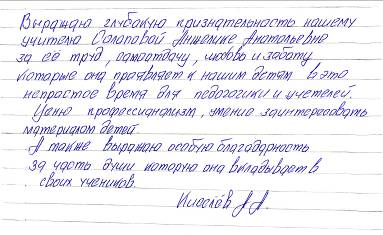 Выражаю глубокую признательность нашему
учителю Солоповой Анжелике Анатольевне
за её труд, самоотдачу, любовь и заботу
которые она проявляет к нашим детям в это
непростое время для педагогики и учителей.
Ценю профессионализм, умение заинтересовать
материалом детей.
А также выражаю особую благодарность
за часть души которую она вкладывает в
своих учеников.
Киселёв А.А.